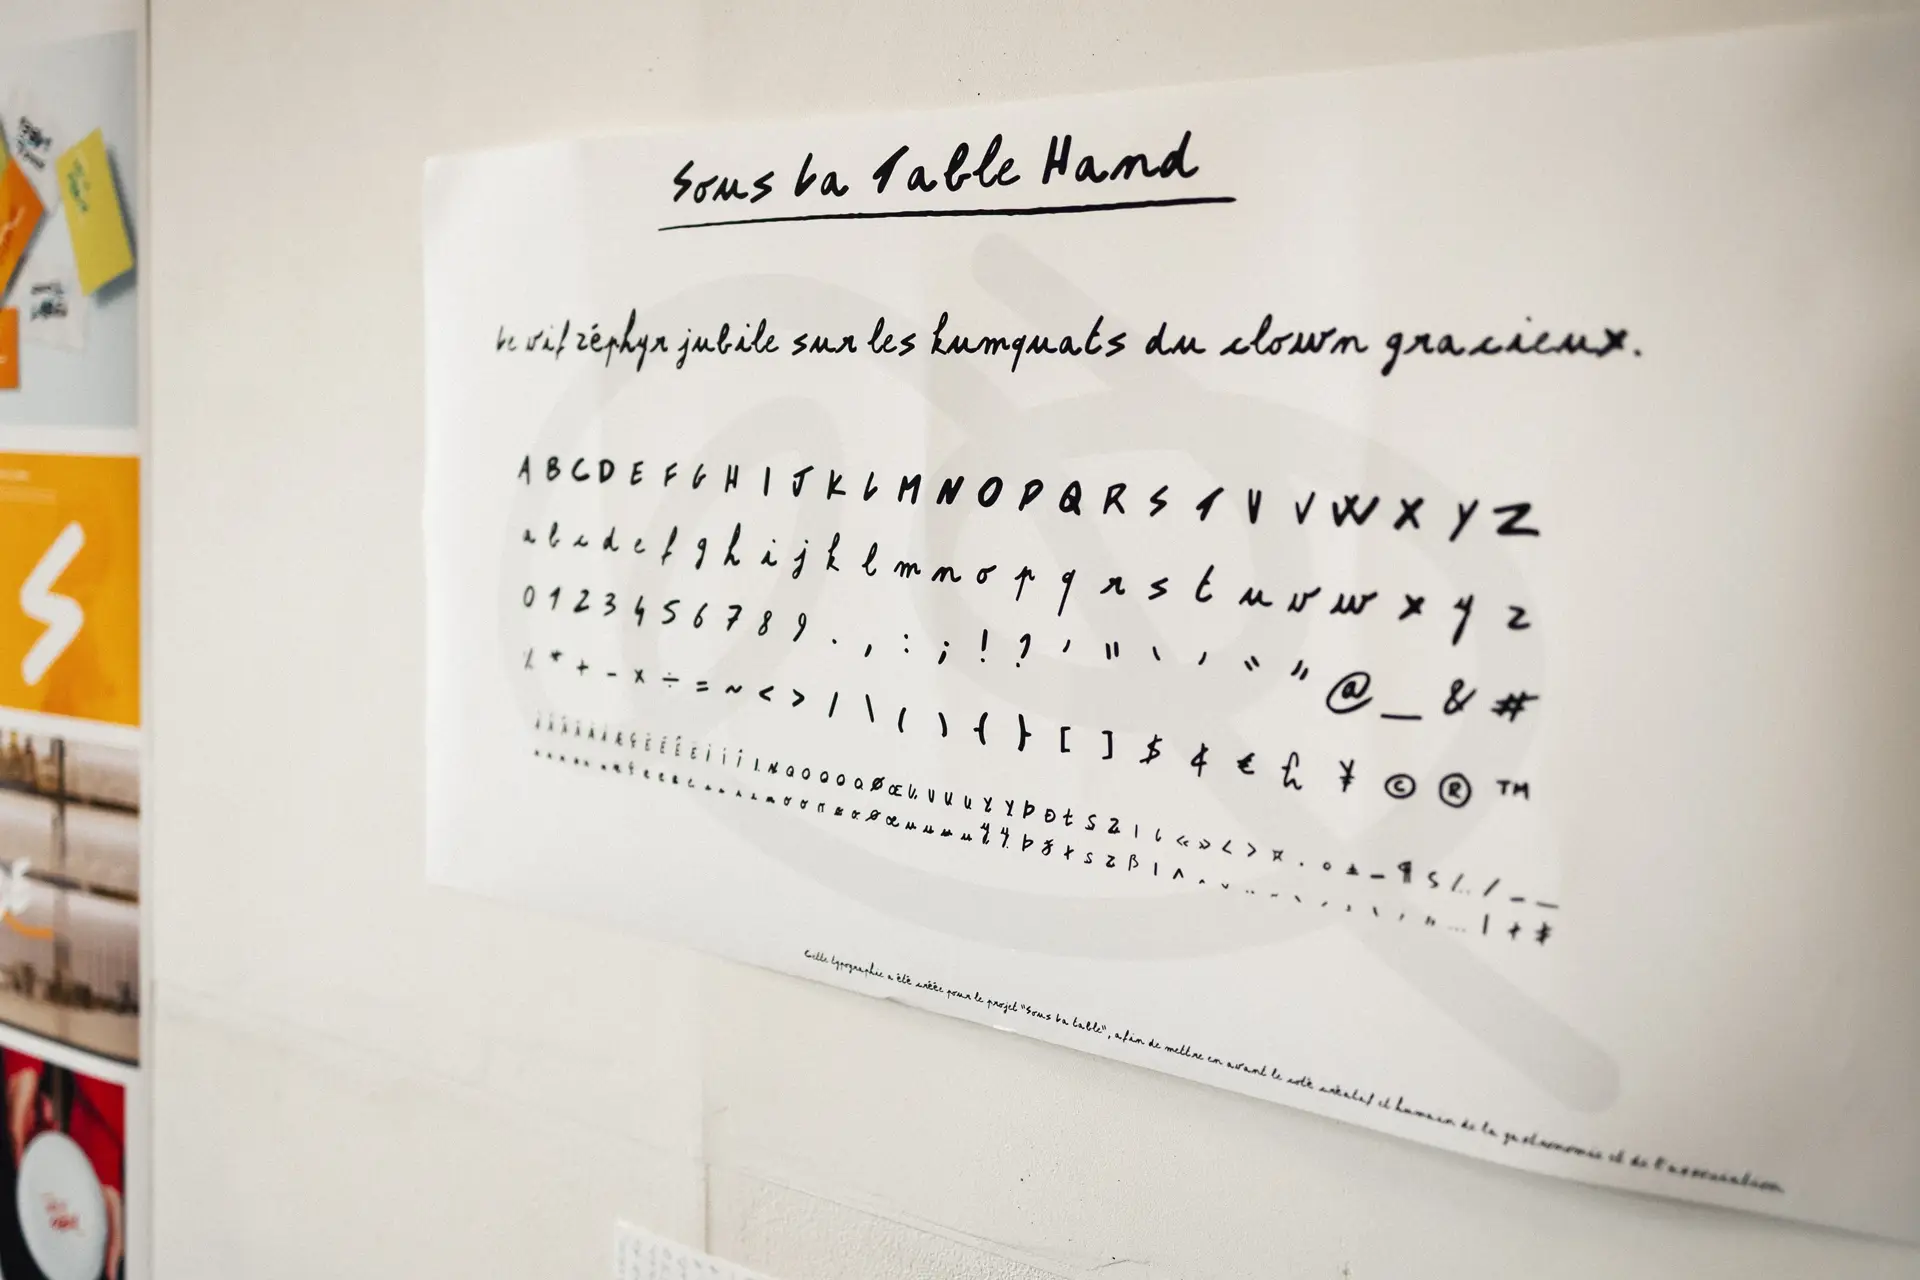 Sous La Table Hand
Le vif zéphyr jubile sur les kumquats du clown gracieux.
A B C D E F G H I J K L M N O P Q R S T U V W X Y Z
a b c d e f g h i j k l m n o p q r s t u v w x y z
0 1 2 3 4 5 6 7 8 9 . , : ; ! ? ' " ‘ ’ “ ” @ _ & #
% * + - × ÷ = ~ < > / \ ( ) { } [ ] $ ¢ € £ ¥ © ® ™
Cette typographie a été créée pour le projet "Sous La table", afin de mettre en avant le coté créatif et humain de la gastronomie et de l'association